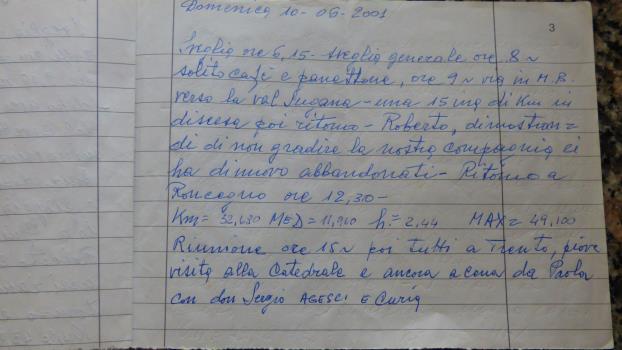 Domenica 10-06-2001
3
Sveglia ore 6,15 - sveglia generale ore 8 ~
solito caffè e panettone, ore 9 ~ via in M.B.
verso la val Sugana - una 15ina di Km in
discesa poi ritorno - Roberto, dimostran=
do di non gradire la nostra compagnia ci
ha di nuovo abbandonati - Ritorno a
Roncegno ore 12,30 -
Km= 32,630 MED= 11,960 h.= 2,44 MAX= 49,100
Riunione ore 15 ~ poi tutti a Trento, piove
visita alla Catedrale e ancora a cena da Paola
con don Sergio AGESCI E Curia